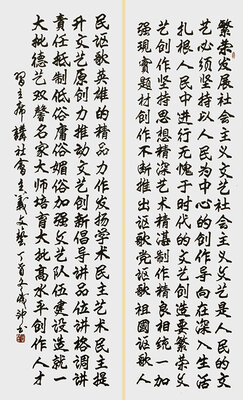 繁荣发展社会主义文艺社会主义文艺是人民的文
艺必须坚持以人民为中心的创作导向在深入生活
扎根人民中进行无愧于时代的文艺创造要繁荣文
艺创作坚持思想精深艺术精湛制作精良相统一加
强现实题材创作不断推出讴歌党讴歌祖國讴歌人
民讴歌英雄的精品力作发扬学术民主艺术民主提
升文艺原创力推动文艺创新倡导讲品位讲格调讲
责任抵制低俗庸俗媚俗加强文艺队伍建设造就一
大批德艺双馨名家大师培育大批高水平创作人才
習主席講社會主義文藝丁酉